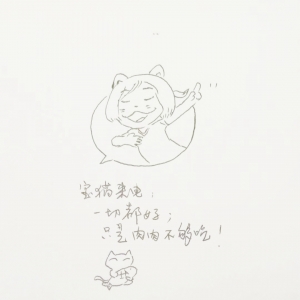 宝猫来电：
一切都好；
只是肉肉不够吃！